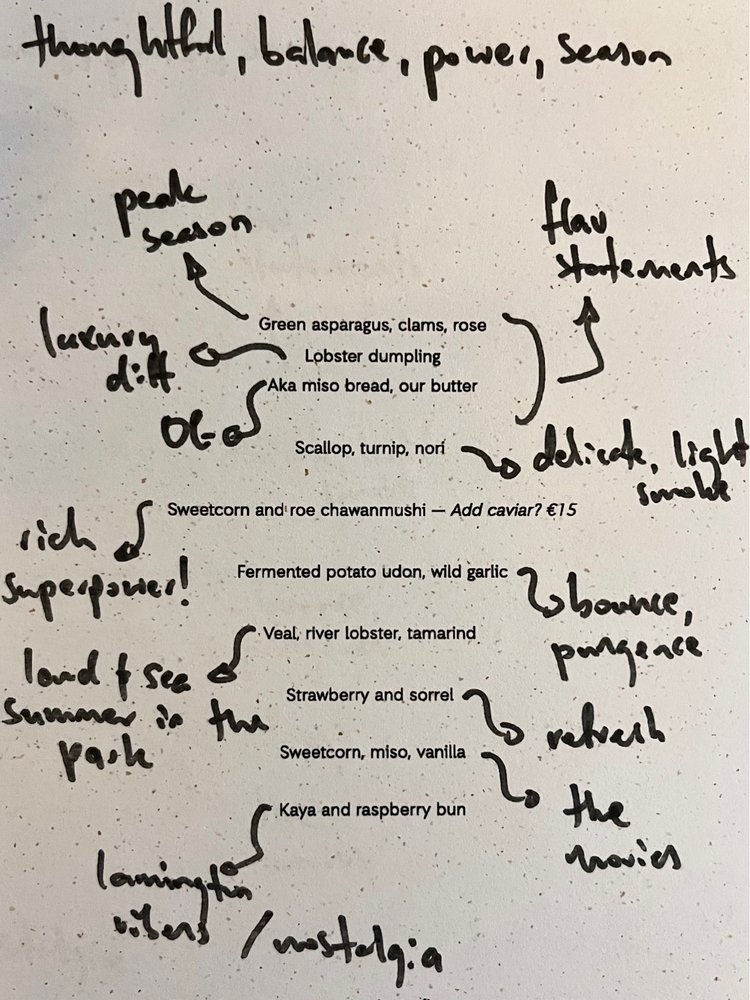 thoughtful, balance, power, season
peak
season
flav
statements
Green asparagus, clams, rose
luxury
diff
Lobster dumpling
Aka miso bread, our butter
OG
Scallop, turnip, nori
delicate, light
smoke
Sweetcorn and roe chawanmushi — Add caviar? €15
rich
superpower!
Fermented potato udon, wild garlic
bounce,
pungence
Veal, river lobster, tamarind
land & sea
summer in the
park
Strawberry and sorrel
refresh
Sweetcorn, miso, vanilla
the
movies
Kaya and raspberry bun
lamington
/nostalgia